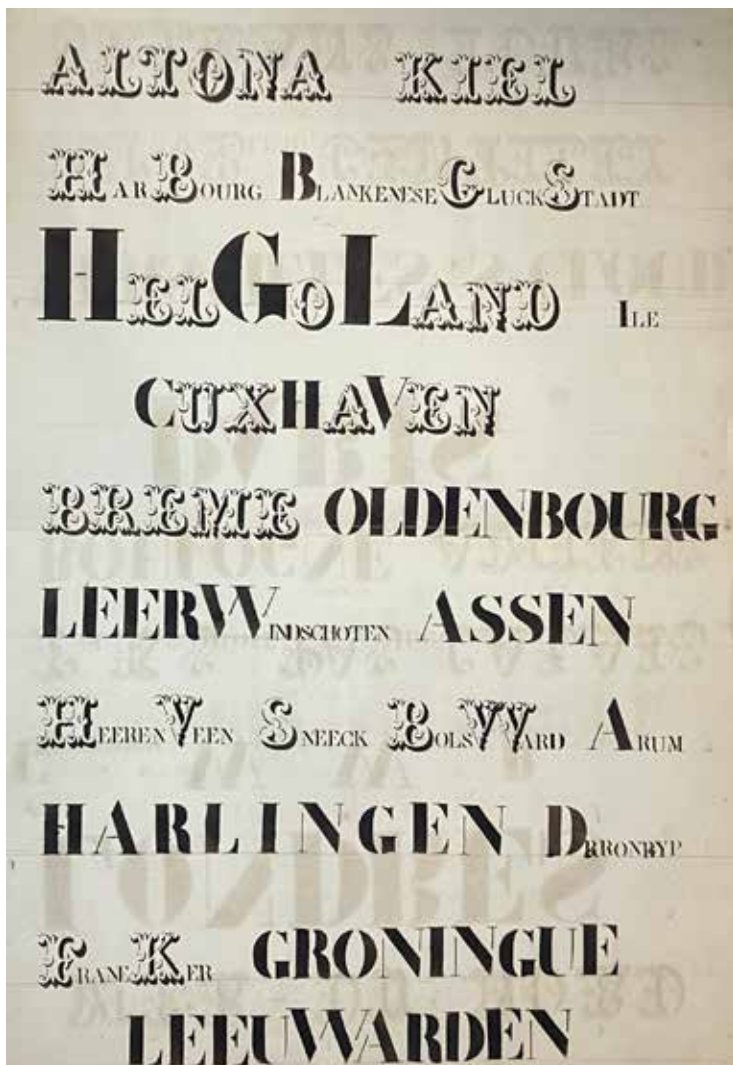 ALTONA KIEL
HARBOURG BLANKENESE GLUCKSTADT
HELGOLAND ILE
CUXHAVEN
BREME OLDENBOURG
LEER WINDSCHOTEN ASSEN
HEERENVEEN SNEECK BOLSWARD ARUM
HARLINGEN DRRONRYP
FRANEKER GRONINGUE
LEEUWARDEN